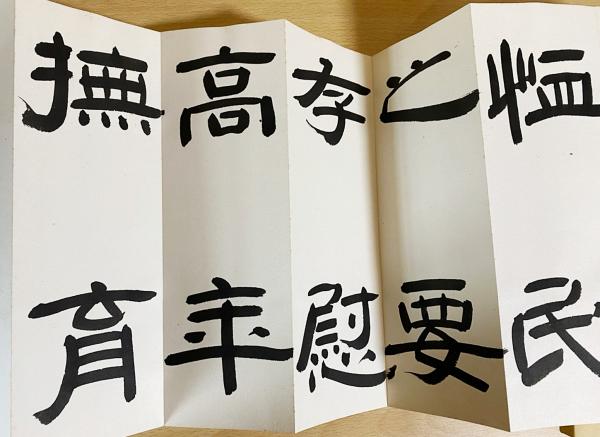 恤民
之要
存慰
高年
撫育